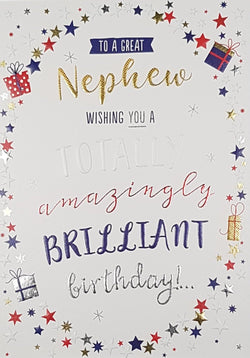 TO A GREAT
Nephew
WISHING YOU A
TOTALLY
amazingly
BRILLIANT
birthday!...